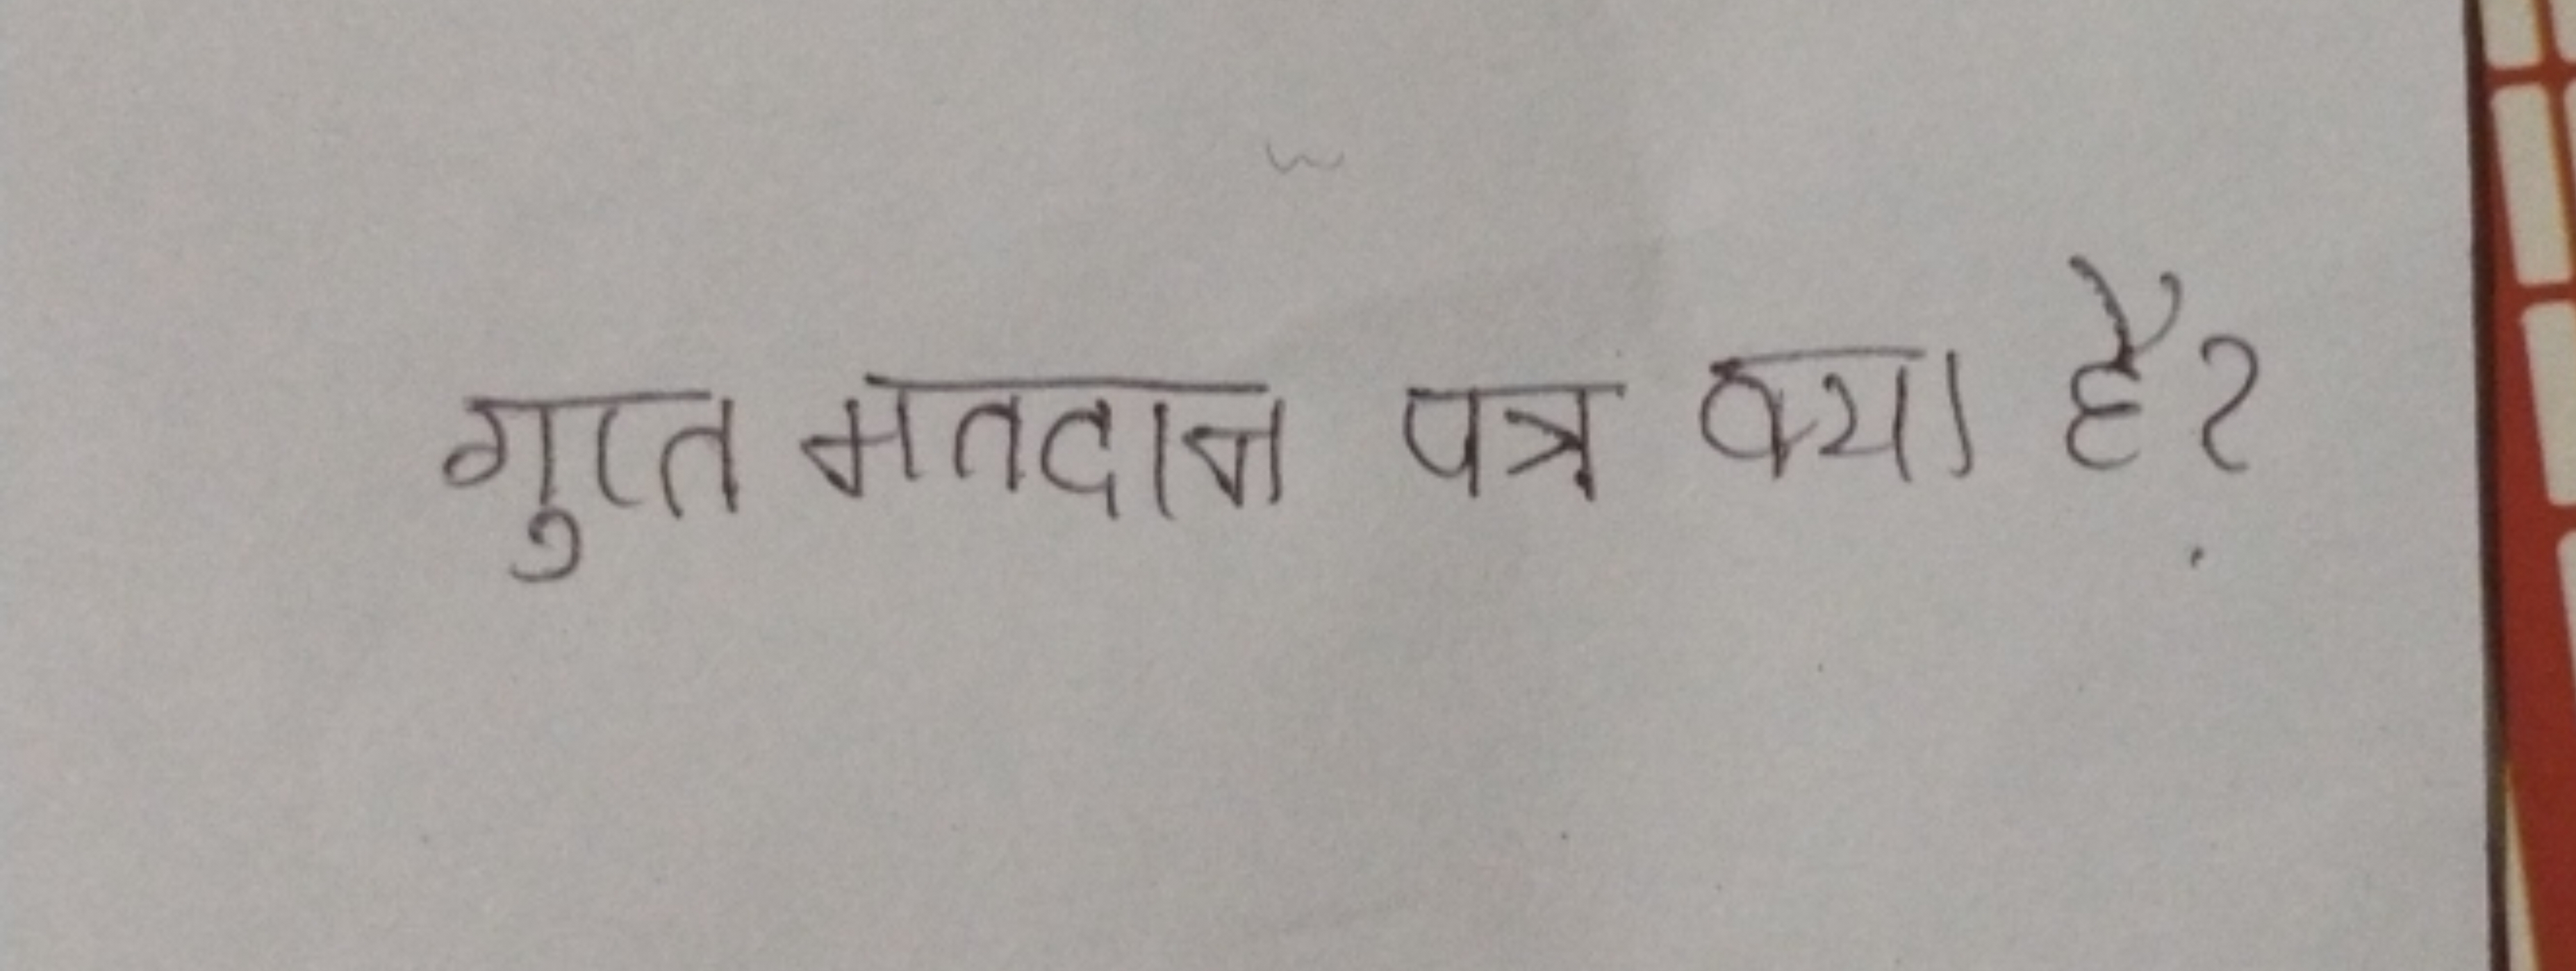 गुप्त मतदान पत्र क्या है?